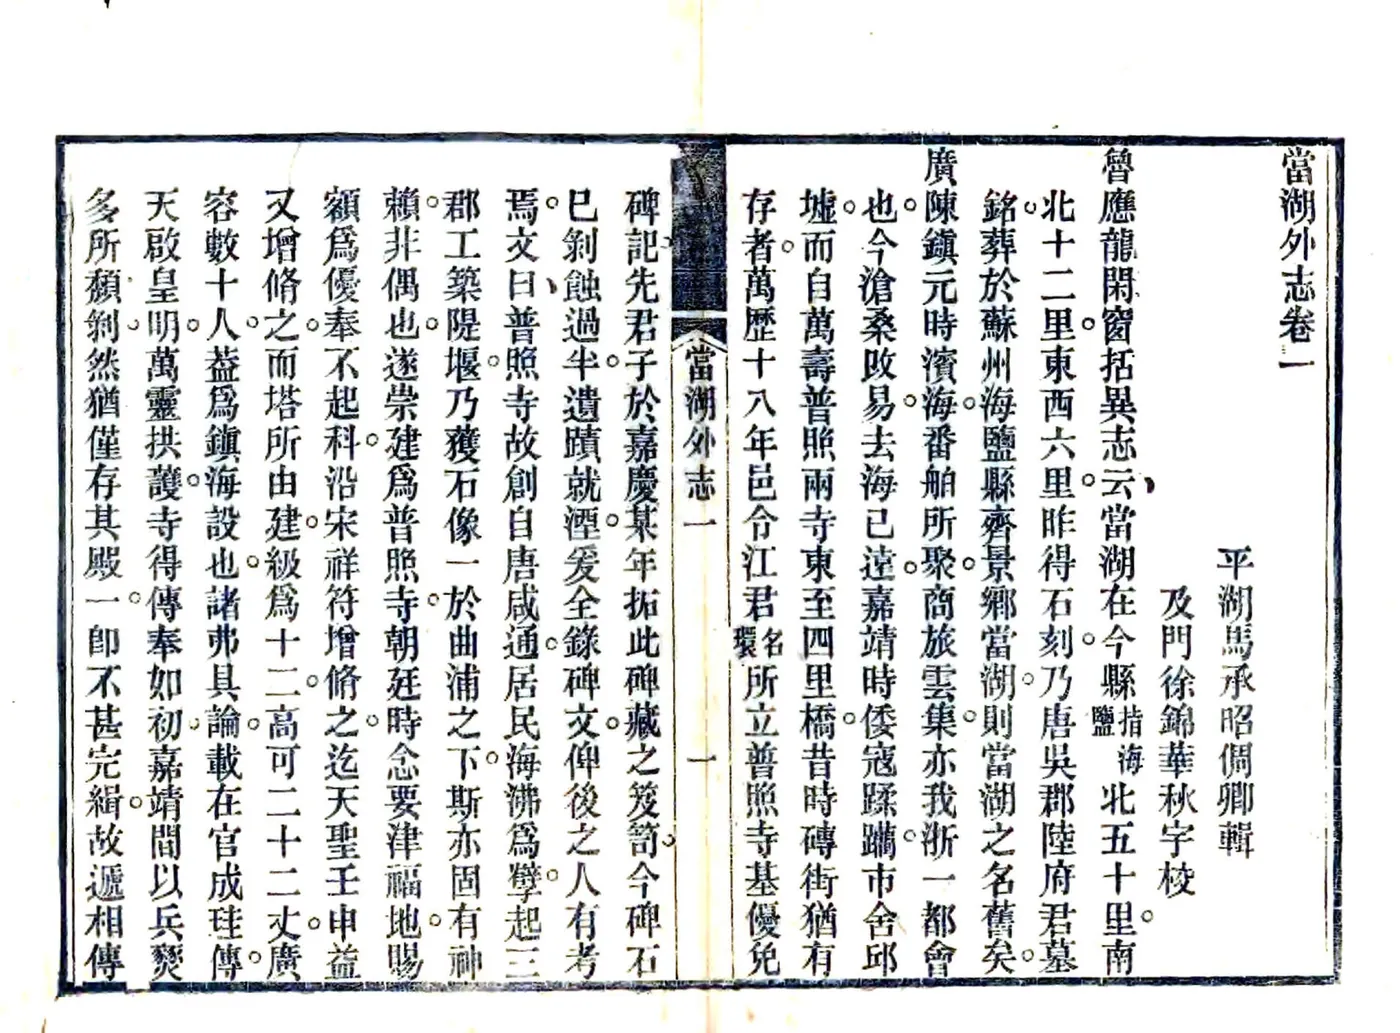 當湖外志卷一
平湖馬承昭倜卿輯
及門徐錦華秋宇校
魯應龍閑窗括異志云當湖在今縣指海鹽北五十里南
北十二里東西六里昨得石刻乃唐吳郡陸府君墓
銘葬於蘇州海鹽縣齊景鄉當湖則當湖之名舊矣
廣陳鎮元時濱海番舶所聚商旅雲集亦我浙一都會
也今滄桑改易去海已遠嘉靖時倭寇蹂躪市舍邱
墟而自萬壽普照兩寺東至四里橋昔時磚街猶有
存者萬歷十八年邑令江君名環所立普照寺基優免
當湖外志一
一
碑記先君子於嘉慶某年拓此碑藏之笈笥今碑石
已剝蝕過半遺蹟就湮爰全錄碑文俾後之人有考
焉文曰普照寺故創自唐咸通居民海沸爲孽起三
郡工築隄堰乃獲石像一於曲浦之下斯亦固有神
賴非偶也遂崇建爲普照寺朝廷時念要津福地賜
額爲優奉不起科沿宋祥符增脩之迄天聖壬申益
又增脩之而塔所由建級爲十二高可二十二丈廣
容數十人葢爲鎮海設也諸弗具論載在官成珪傳
天啟皇明萬靈拱護寺得傳奉如初嘉靖間以兵燹
多所頹剝然猶僅存其殿一卽不甚完緝故遞相傳